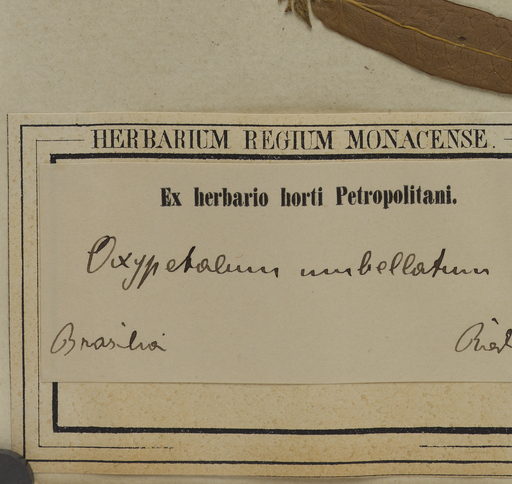 HERBARIUM REGIUM MONACENSE.
Ex herbario horti Petropolitani.
Oxypetalum umbellatum
Brasilia